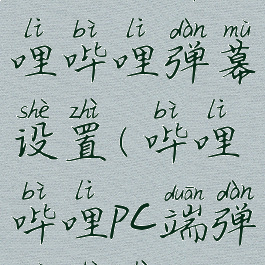 lì bì lì dàn mù
哩哔哩弹幕
shè zhì bì lì
设置(哔哩
bì lì duān dàn
哔哩PC端弹